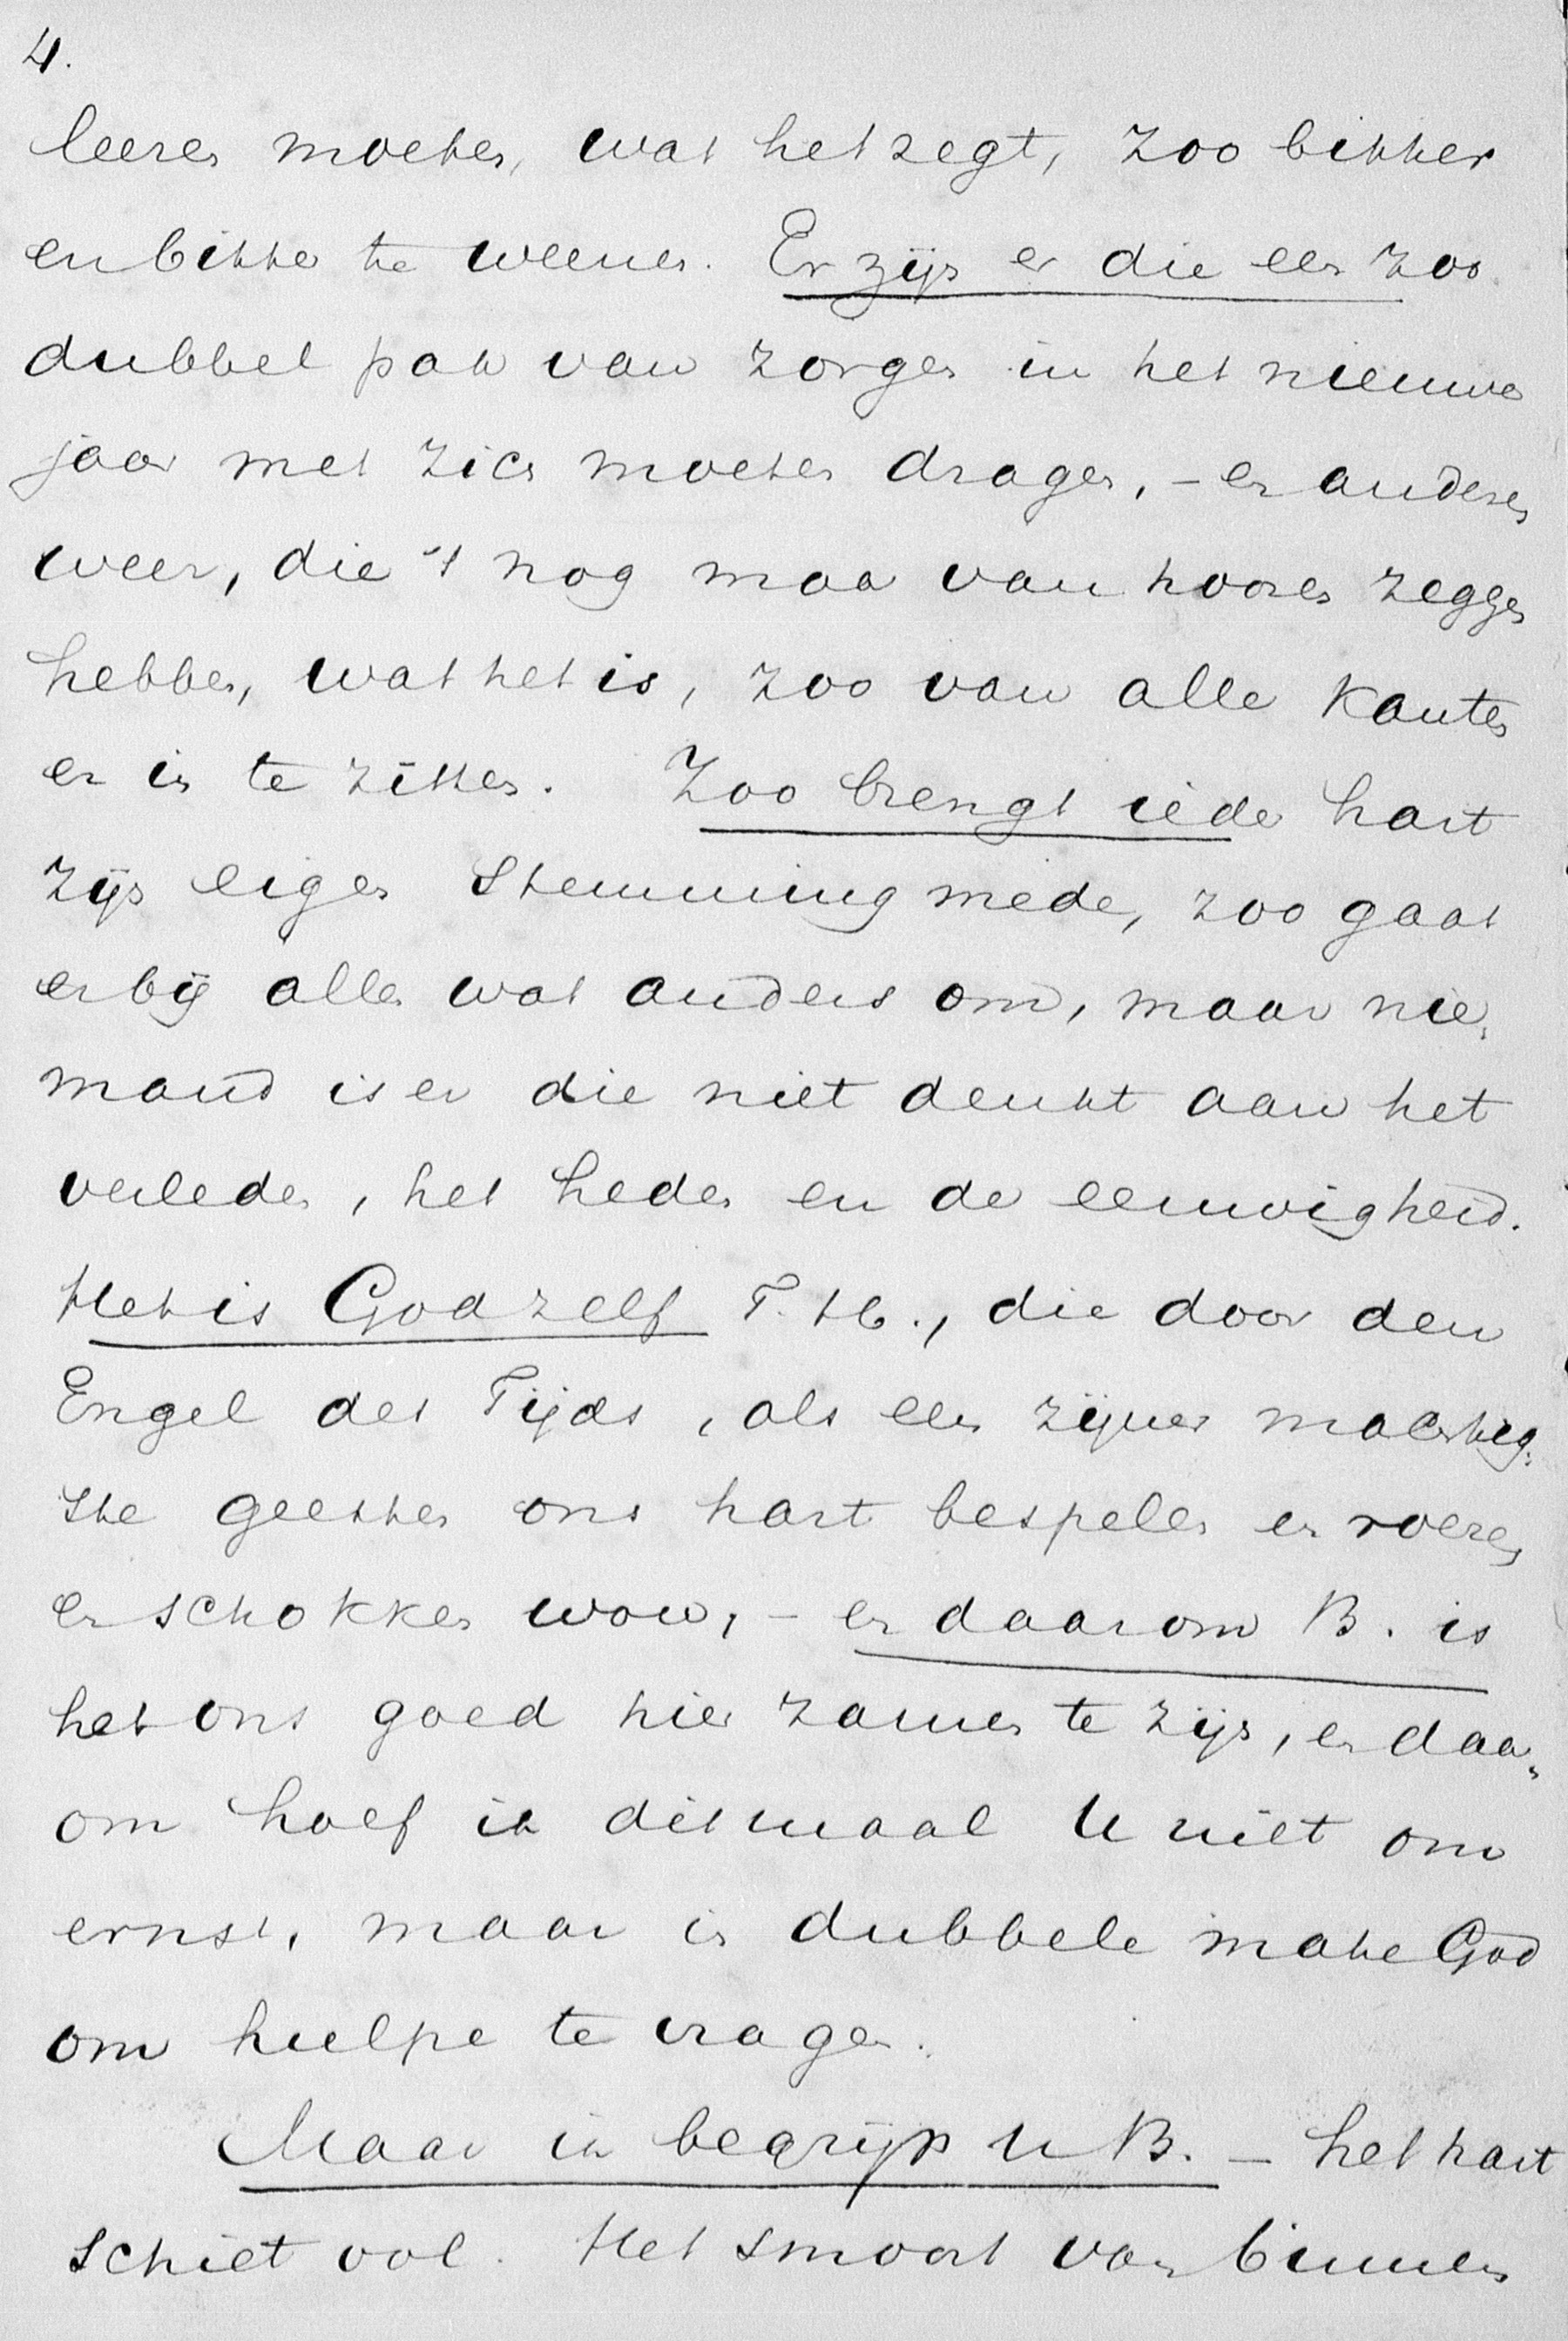 4.
leeren moeten, wat het zegt, zoo bitter
en bitter te weenen. Er zijn er die een zoo
dubbel pak van zorgen in het nieuwe
jaar met zich moeten dragen, – en anderen
weer, die 't nog maar van hooren zeggen
hebben, wat het is, zoo van alle kanten
er in te zitten. Zoo brengt ieder hart
zijn eigen stemming mede, zoo gaat
er bij allen wat anders om, maar nie„
mand is er die niet denkt aan het
verleden, het heden en de eeuwigheid.
Het is God zelf T. H., die door den
Engel des Tijds, als een zijner machtig„
ste geesten ons hart bespelen en roeren
en schokken wou, – en daarom B. is
het ons goed hier zamen te zijn, en daar„
om hoef ik ditmaal U niet om
ernst, maar in dubbele mate God
om hulpe te vragen.
Maar ik begrijp U B. – het hart
schiet vol. Het smoort van binnen